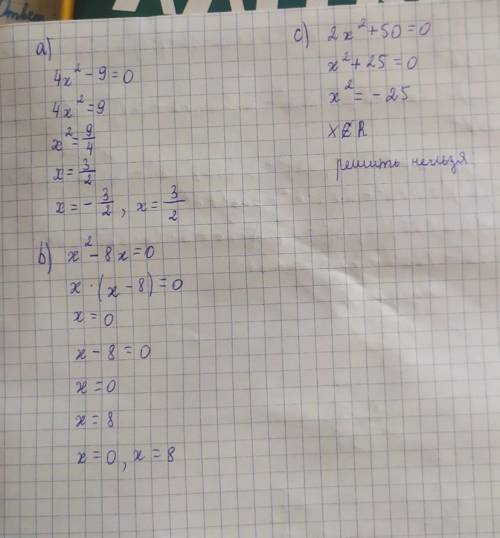 Ответ
a)
4x² - 9 = 0
4x² = 9
x² = 9/4
x = 3/2
x = - 3/2 , x = 3/2
b) x² - 8x = 0
x · (x - 8) = 0
x = 0
x - 8 = 0
x = 0
x = 8
x = 0 , x = 8
c) 2x² + 50 = 0
x² + 25 = 0
x² = - 25
x ∉ R
решить нельзя